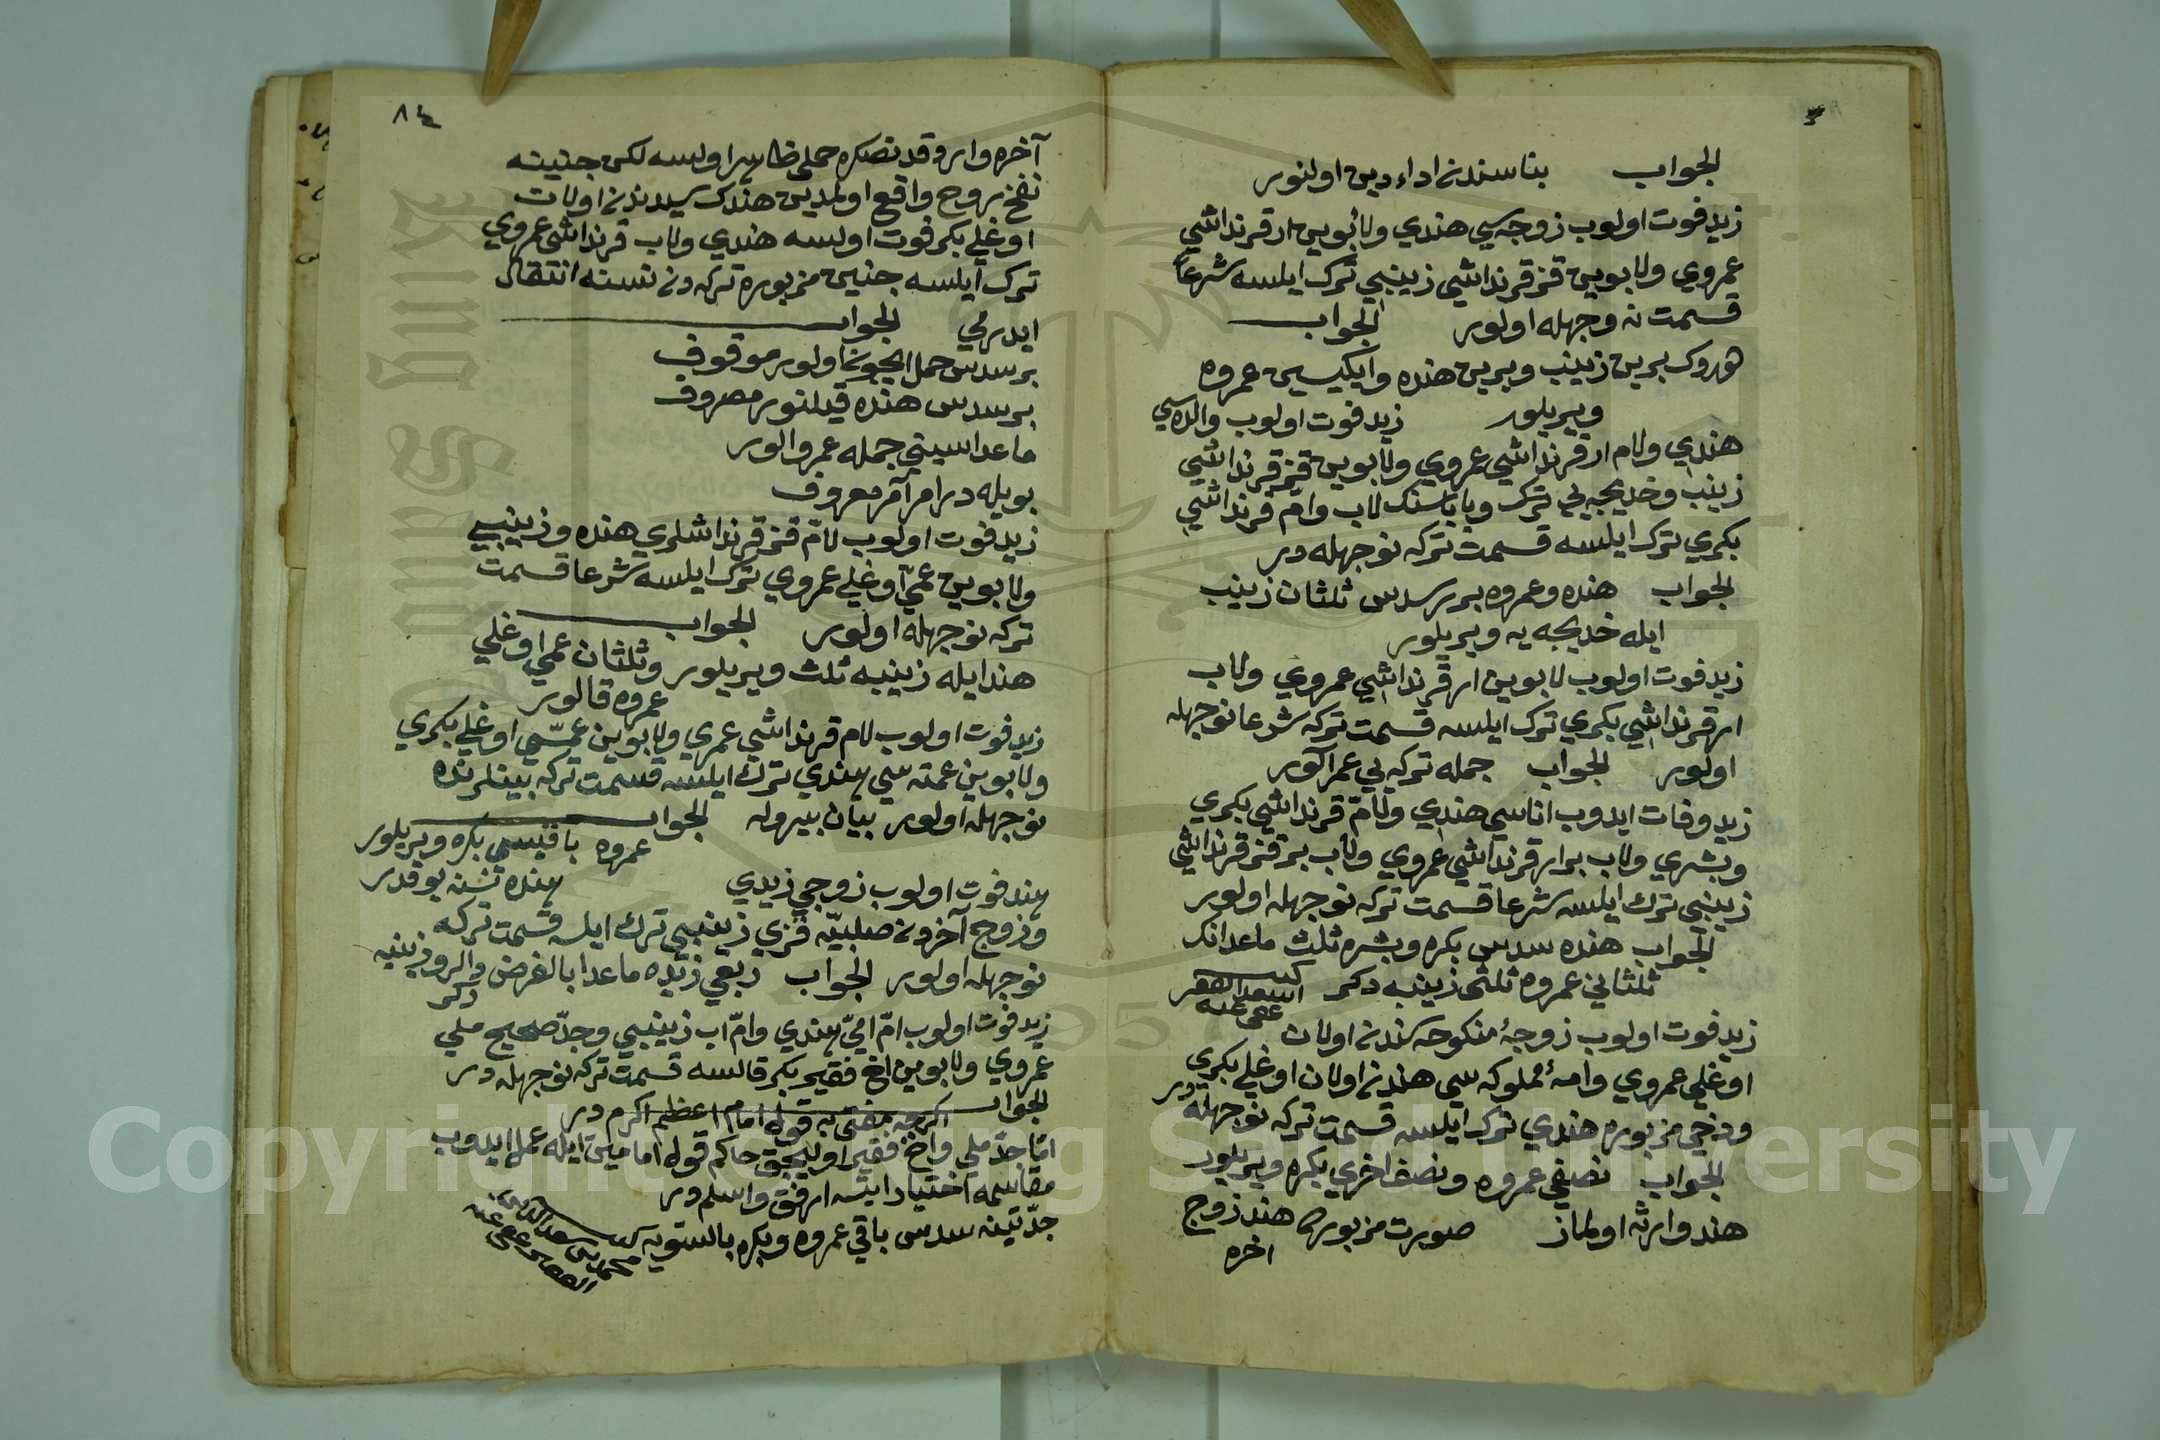 الجواب بناسندن اداء دين اولنور
زيد فوت اولوب زوجه سي هندي ولابوين ار قرنداشي
عمروي ولابوين قز قرنداشي زينبي ترك ايلسه شرعا
قسمت نه وجهله اولور الجواب
برين زينب وبرين هنده وايكيسين عمروه
ويريلور زيد فوت اولوب والده سي
هندي ولام ار قرنداشي عمروي ولابوين قز قرنداشي
زينب وخديجه يي ترك وباباسنك لاب وام قرنداشي
بكري ترك ايلسه قسمت تركه نوجهله در
الجواب هنده وعمروه برر سدس ثلثان زينب
ايله خديجه يه ويريلور
زيد فوت اولوب لابوين ار قرنداشي عمروي ولاب
ار قرنداشي بكري ترك ايلسه قسمت تركه شرعا نوجهله
اولور الجواب جمله تركه يي عمر آلور
زيد وفات ايدوب اناسي هندي ولام قرنداشي بكري
وبشري ولاب بر ار قرنداشي عمروي ولاب بر قز قرنداشي
زينبي ترك ايلسه شرعا قسمت تركه نوجهله اولور
الجواب هنده سدس بكره وبشره ثلث ماعدانك
ثلثاني عمروه ثلثى زينبه دكر كتبه اسعد الفقير
عفي عنه
زيد فوت اولوب زوجهٔ منكوحه سندن اولان
اوغلي عمروي وامهٔ مملوكه سي هنددن اولان اوغلي بكري
ودخي مزبوره هندي ترك ايلسه قسمت تركه نوجهله در
الجواب نصفي عمروه ونصف اخري بكره ويريلور
هند وارثه اولماز صورت مزبوره هند زوج
اخره
٨٤
آخره واروقدنصكره حملي ظاهر اولسه لكن جنينه
نفخ روح واقع اولمدين هندك سيدندن اولان
اوغلي بكر فوت اولسه هندي ولاب قرنداشي عمروي
ترك ايلسه جنين مزبوره تركه دن نسنه انتقال
ايدرمي الجواب
بر سدس حمل ايچون اولور موقوف
بر سدس هنده قيلنور مصروف
ماعداسيني جمله عمرو الور
بويله در امر آمر معروف
زيد فوت اولوب لام قز قرنداشلري هنده وزينبي
ولابوين عمي اوغلي عمروي ترك ايلسه شرعا قسمت
تركه نوجهله اولور الجواب
هند ايله زينبه ثلث ويريلور وثلثان عمي اوغلي
عمروه قالور
زيد فوت اولوب لام قرنداشي عمري ولابوين عمسي اوغلي بكري
ولابوين عمته سي هندي ترك ايلسه قسمت تركه بينلرنده
نوجهله اولور بيان بيورله الجواب
عمروه باقيسي بكره ويريلور
هنده نسنه يوقدر
هند فوت اولوب زوجي زيدي
وزوج آخردن صلبيه قزي زينبي ترك ايلسه قسمت تركه
نوجهله اولور الجواب ربعي زيده ماعدا بالفرض والرد زينبه
دكر
زيد فوت اولوب ام امي هندي وام اب زينبي وجد صحيح ملي
عمروي ولابوين اخ فقير بكر قالسه قسمت تركه نوجهله در
الجواب اكرچه مفتى به قول امام اعظم اكرم در
اما جد ملي واخ فقير اوليجق حاكم قول امامين ايله عمل ايدوب
مقاسمه اختيار ايتسه ارفق واسلم در
جدتينه سدس باقي عمروه وبكره بالسويه
محمد بن سعد الدين
الفقير عفي عنه